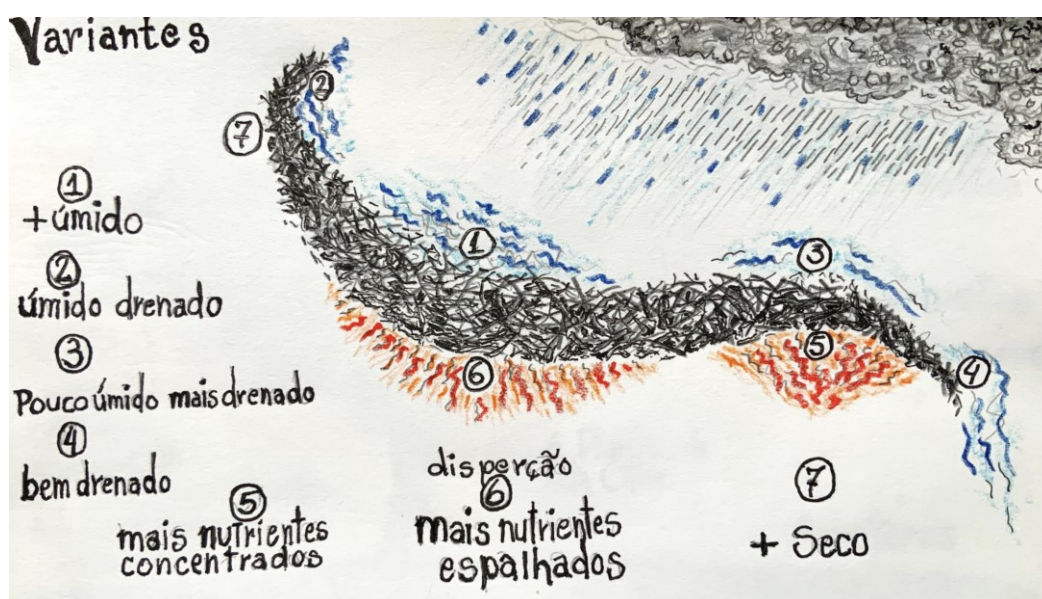 Variantes
②
⑦
①
③
⑤
⑥
④
①
+úmido
②
úmido drenado
③
Pouco úmido mais drenado
④
bem drenado
⑤
mais nutrientes
concentrados
disperção
⑥
mais nutrientes
espalhados
⑦
+ Seco